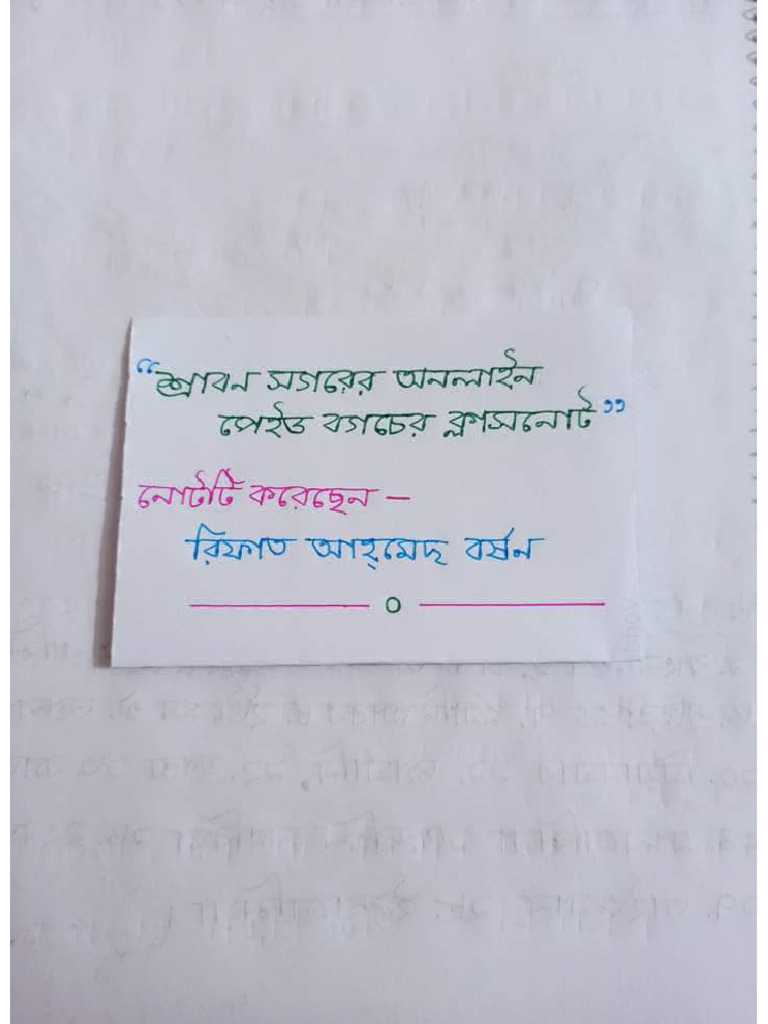 “শ্রাবন সাগরের অনলাইন
পেইড ব্যাচের ক্লাসনোট”
নোটটি করেছেন —
রিফাত আহ্মেদ বর্ষন